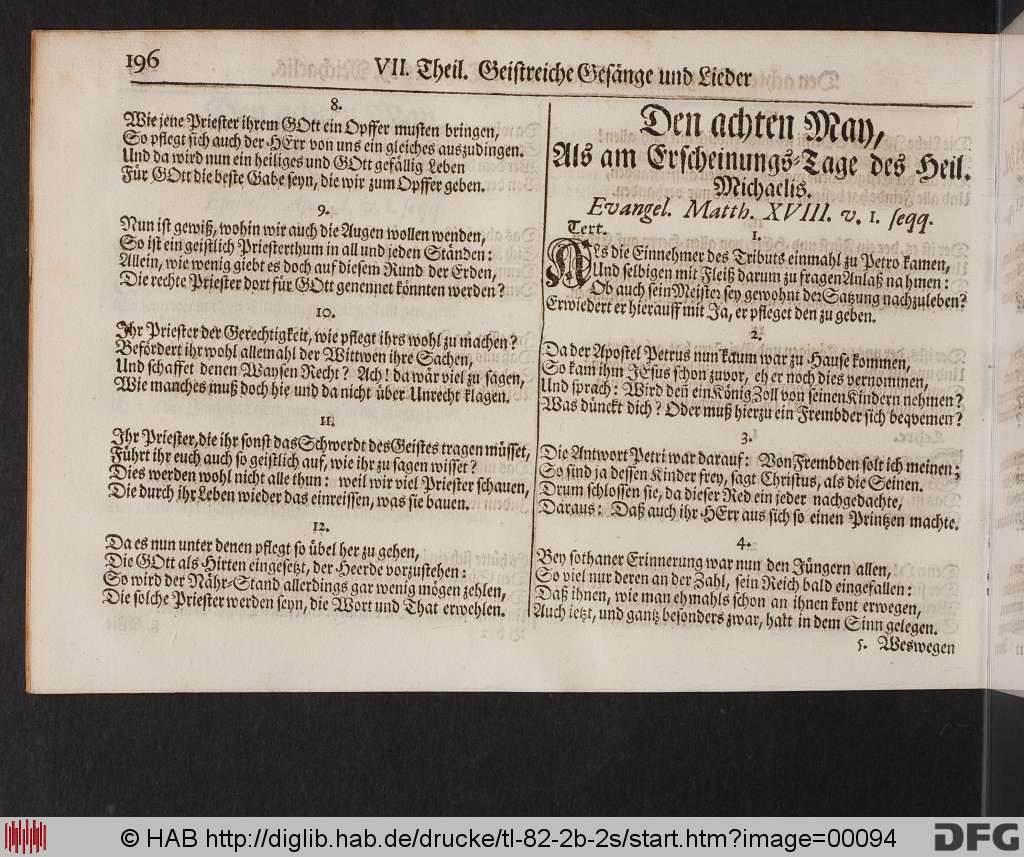 196
VII. Theil. Geistreiche Gesänge und Lieder
8.
Wie jene Priester ihrem GOtt ein Opffer musten bringen,
So pflegt sich auch der HErr von uns ein gleiches auszudingen.
Und da wird nun ein heiliges und GOtt gefällig Leben
Für GOtt die beste Gabe seyn, die wir zum Opffer geben.
9.
Nun ist gewiß, wohin wir auch die Augen wollen wenden,
So ist ein geistlich Priesterthum in all und jeden Ständen:
Allein, wie wenig giebt es doch auf diesem Rund der Erden,
Die rechte Priester dort für GOtt genennet könnten werden?
10.
Ihr Priester der Gerechtigkeit, wie pflegt ihrs wohl zu machen?
Befördert ihr wohl allemahl der Wittwen ihre Sachen,
Und schaffet denen Waysen Recht? Ach! da wär viel zu sagen,
Wie manches muß doch hie und da nicht über Unrecht klagen.
11.
Ihr Priester, die ihr sonst das Schwerdt des Geistes tragen müsset,
Führt ihr euch auch so geistlich auf, wie ihr zu sagen wisset?
Dies werden wohl nicht alle thun: weil wir viel Priester schauen,
Die durch ihr Leben wieder das einreissen, was sie bauen.
12.
Da es nun unter denen pflegt so übel her zu gehen,
Die GOtt als Hirten eingesetzt, der Heerde vorzustehen:
So wird der Nähr-Stand allerdings gar wenig mögen zehlen,
Die solche Priester werden seyn, die Wort und That erwehlen.
Den achten May,
Als am Erscheinungs-Tage des Heil.
Michaelis.
Evangel. Matth. XVIII. v. 1. seqq.
Text.
1.
Als die Einnehmer des Tributs einmahl zu Petro kamen,
Und selbigen mit Fleiß darum zu fragen Anlaß nahmen:
Ob auch sein Meister sey gewohnt der Satzung nachzuleben?
Erwiedert er hierauff mit Ja, er pfleget den zu geben.
2.
Da der Apostel Petrus nun kaum war zu Hause kommen,
So kam ihm JEsus schon zuvor, eh er noch dies vernommen,
Und sprach: Wird deñ ein König Zoll von seinen Kindern nehmen?
Was dünckt dich? Oder muß hierzu ein Frembder sich beqvemen?
3.
Die Antwort Petri war darauf: Von Frembden solt ich meinen;
So sind ja dessen Kinder frey, sagt Christus, als die Seinen.
Drum schlossen sie, da dieser Red ein jeder nachgedachte,
Daraus: Daß auch ihr HErr aus sich so einen Printzen machte.
4.
Bey sothaner Erinnerung war nun den Jüngern allen,
So viel nur deren an der Zahl, sein Reich bald eingefallen:
Daß ihnen, wie man ehmahls schon an ihnen kont erwegen,
Auch ietzt, und gantz besonders zwar, hatt in dem Sinn gelegen.
5. Weswegen
© HAB http://diglib.hab.de/drucke/tl-82-2b-2s/start.htm?image=00094
DFG